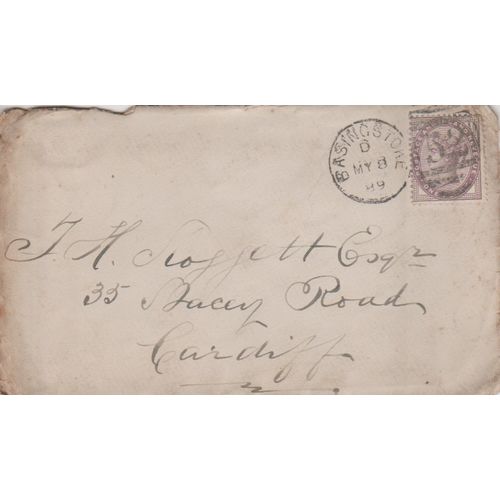 BASINGSTOKE
D
MY 8
89
J. H. Hoggett Esqr
35 Stacey Road
Cardiff